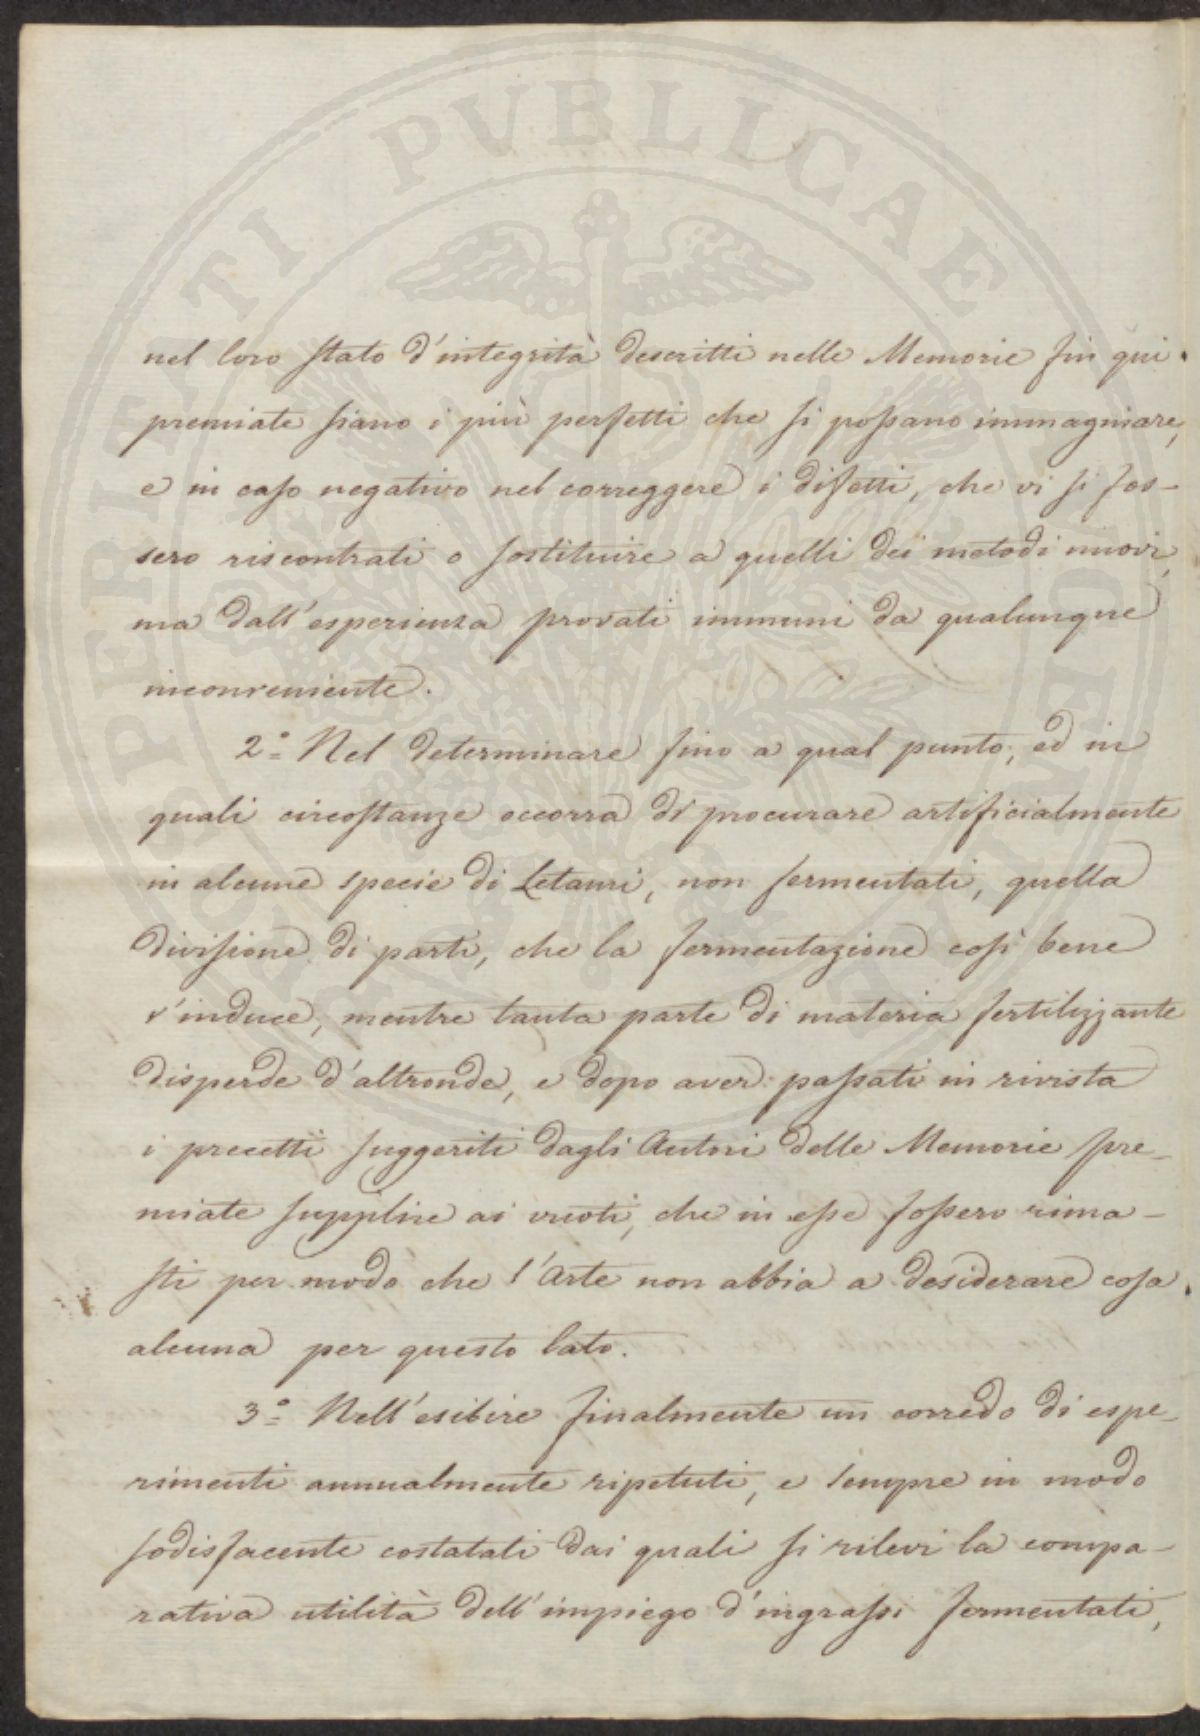 PROSPERITATI PUBLICAE AUGENDAE
nel loro stato d'integrità descritti nelle Memorie fin qui
premiate siano i più perfetti che si possano immaginare,
e in caso negativo nel correggere i difetti, che vi si fos-
sero riscontrati o sostituire a quelli dei metodi nuovi,
ma dall'esperienza provati immuni da qualunque
inconveniente.
2.° Nel determinare fino a qual punto, ed in
quali circostanze occorra di procurare artificialmente
in alcune specie di Letami, non fermentati, quella
divisione di parti, che la fermentazione così bene
v'induce, mentre tanta parte di materia fertilizzante
disperde d'altronde, e dopo aver passati in rivista
i precetti suggeriti dagli Autori delle Memorie pre-
miate supplire ai vuoti, che in esse fossero rima-
sti per modo che l'Arte non abbia a desiderare cosa
alcuna per questo lato.
3.° Nell'esibire finalmente un corredo di espe-
rimenti annualmente ripetuti, e sempre in modo
sodisfacente costatati dai quali si rilevi la compa-
rativa utilità dell'impiego d'ingrassi fermentati,